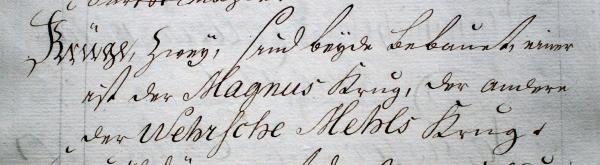 Krüge, Zwey, sind beyde bebauet, einer
ist der Magnus Krug, der andere
der Wehrsche Mehls Krug.